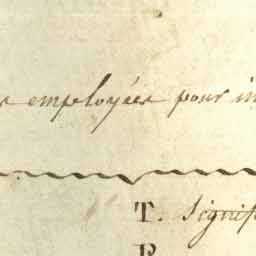 employées pour
T. Signif
P